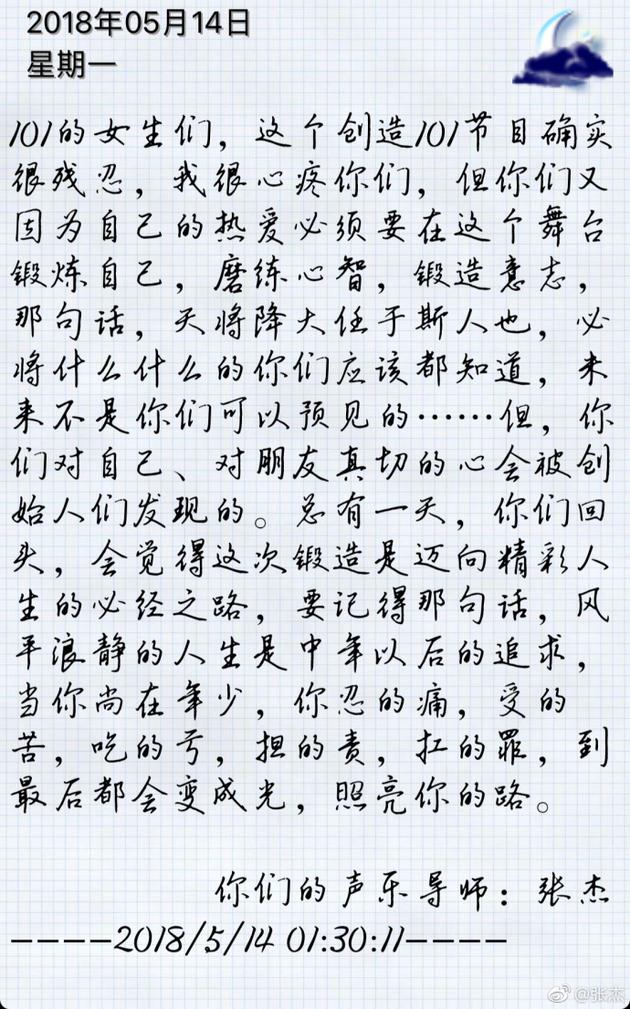 2018年05月14日
星期一
101的女生们，这个创造101节目确实
很残忍，我很心疼你们，但你们又
因为自己的热爱必须要在这个舞台
锻炼自己，磨练心智，锻造意志，
那句话，天将降大任于斯人也，必
将什么什么的你们应该都知道，未
来不是你们可以预见的……但，你
们对自己、对朋友真切的心会被创
始人们发现的。总有一天，你们回
头，会觉得这次锻造是迈向精彩人
生的必经之路，要记得那句话，风
平浪静的人生是中年以后的追求，
当你尚在年少，你忍的痛，受的
苦，吃的亏，担的责，扛的罪，到
最后都会变成光，照亮你的路。
你们的声乐导师：张杰
----2018/5/14 01:30:11----
@张杰